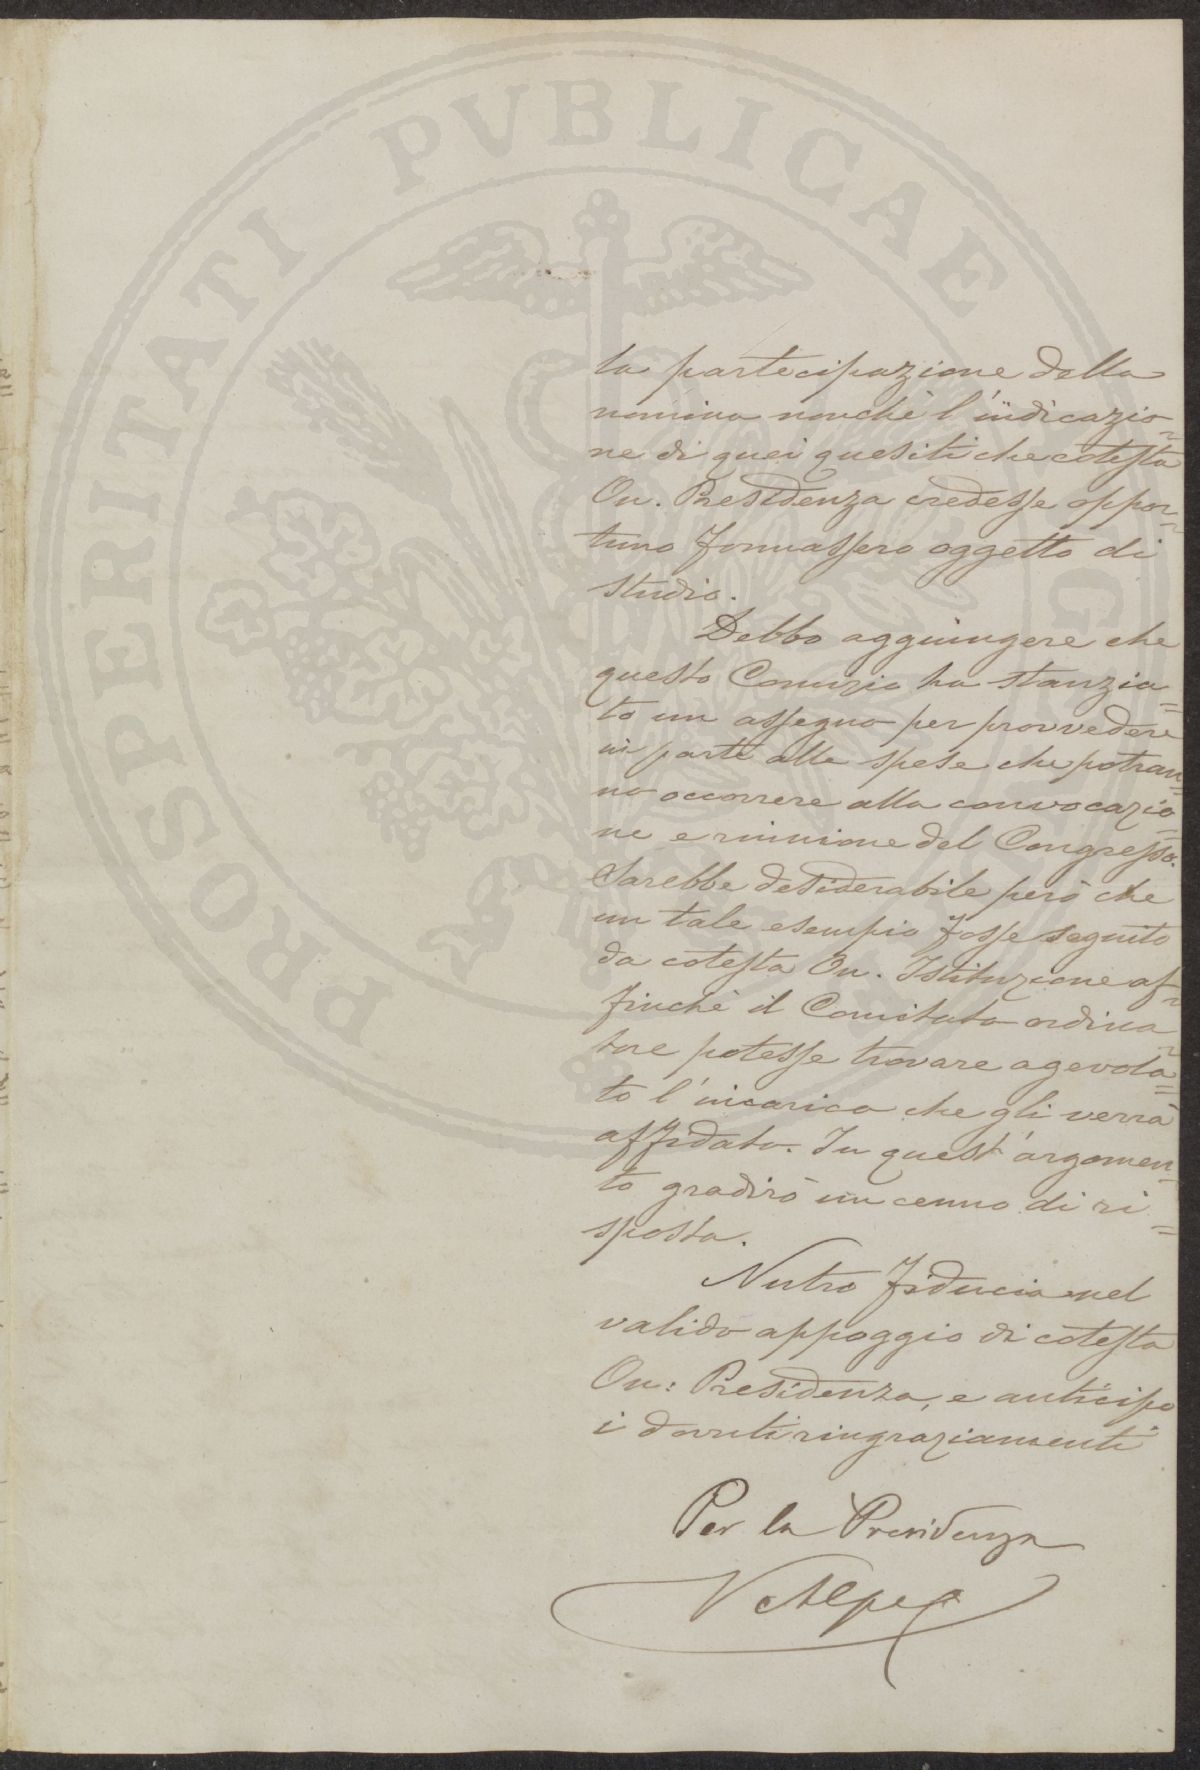 PROSPERITATI PVBLICAE
la partecipazione della
nomina nonchè l'indicazio=
ne di quei quesiti che cotesta
On. Presidenza credesse oppor=
tuno formassero oggetto di
studio.
Debbo aggiungere che
questo Comizio ha stanzia=
to un assegno per provvedere
in parte alle spese che potran=
no occorrere alla convocazio=
ne e riunione del Congresso.
Sarebbe desiderabile però che
un tale esempio fosse seguito
da cotesta On. Istituzione af=
finchè il Comitato ordina=
tore potesse trovare agevola=
to l'incarico che gli verrà
affidato. In quest'argomen=
to gradirò un cenno di ri=
sposta.
Nutro fiducia nel
valido appoggio di cotesta
On: Presidenza, e anticipo
i dovuti ringraziamenti
Per la Presidenza
V Alpe